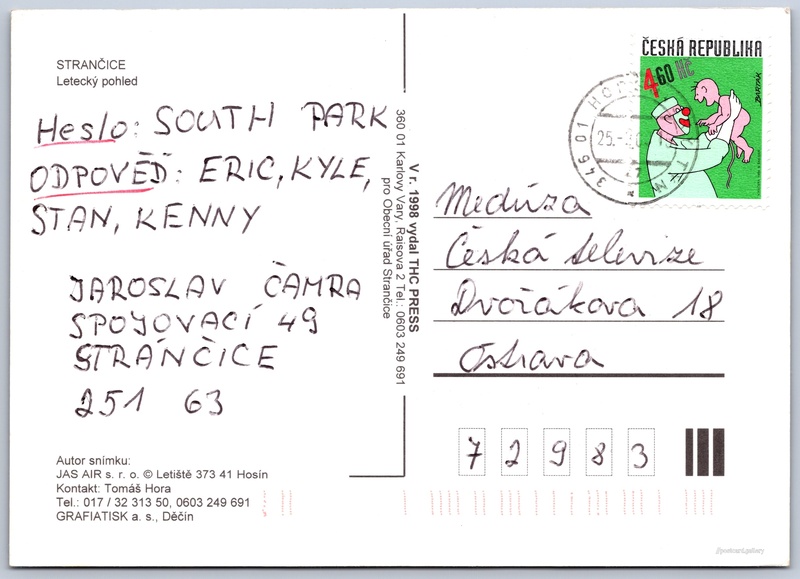 STRANČICE
Letecký pohled
Heslo: SOUTH PARK
ODPOVĚĎ: ERIC, KYLE,
STAN, KENNY
JAROSLAV ČAMRA
SPOJOVACÍ 49
STRÁNČICE
251 63
Autor snímku:
JAS AIR s. r. o. © Letiště 373 41 Hosín
Kontakt: Tomáš Hora
Tel.: 017 / 32 313 50, 0603 249 691
GRAFIATISK a. s., Děčín
V r. 1998 vydal THC PRESS
360 01 Karlovy Vary, Raisova 2 Tel.: 0603 249 691
pro Obecní úřad Strančice
ČESKÁ REPUBLIKA
460 Kč
BARTÁK
345 01
25.
Medúza
Česká televize
Dvořákova 18
Ostrava
72983